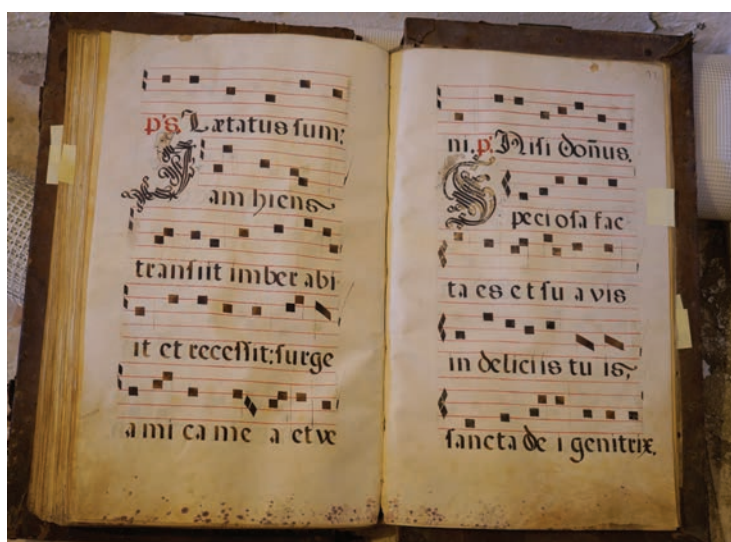 ps. Lætatus sum:
Jam hiens
transiit imber abi
it et recessit: surge
amica mea et ve
ni. p. Nisi don̄us.
Speciosa fac
ta es et suavis
in deliciis tuis,
sancta dei genitrix.